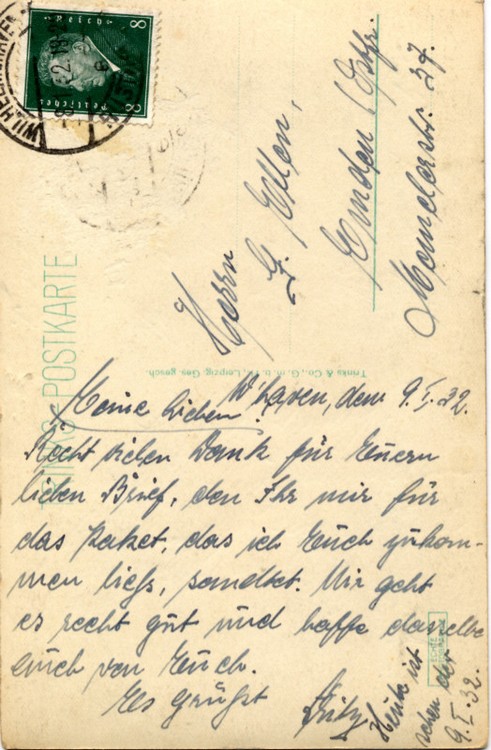 WILHELMSHAVEN
8 8
Deutsches
TRINKS-POSTKARTE
Trinks & Co., G. m. b. H., Leipzig. Ges. gesch.
Herrn
Emden /Ostfr.
W'haven, dem 9.I.32.
Meine Lieben!
Recht vielen Dank für Euern
lieben Brief, den Ihr mir für
das Paket, das ich Euch zukom-
men ließ, sandtet. Mir geht
es recht gut und hoffe dasselbe
auch von Euch.
Es grüßt
Fritz
Heute ist
schon der
9.I.32.